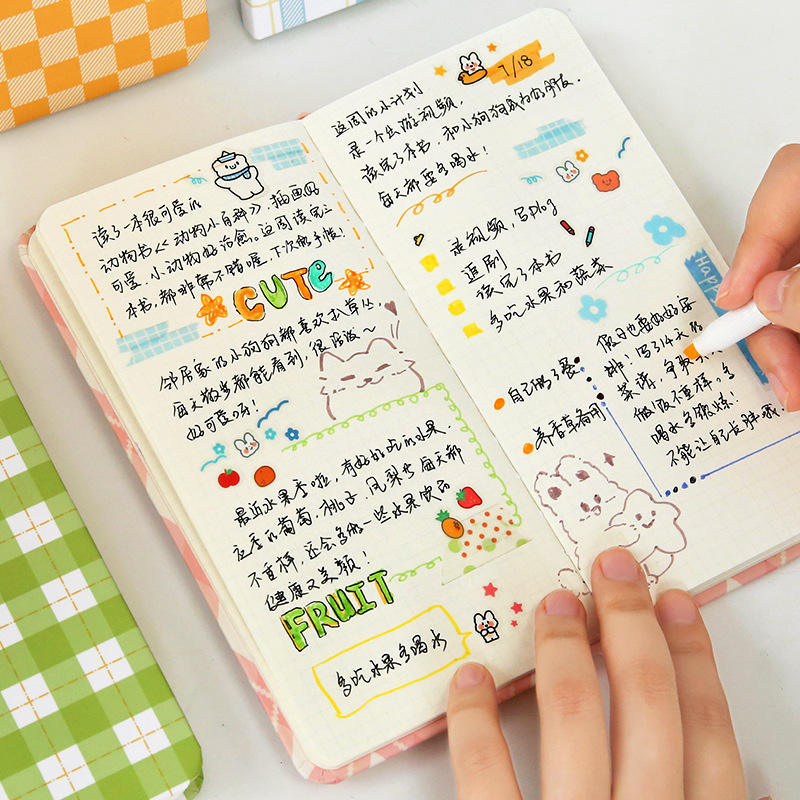 读了一本很可爱的
动物书《动物小百科》,插画好
可爱,小动物好治愈。这周读完三
本书,都非常不错喔,下次做手帐!
CUTE
邻居家的小狗狗都喜欢扒草丛,
每天散步都能看到,很活泼~
好可爱呀!
最近水果季啦,有好多好吃的水果.
应季的葡萄、桃子、凤梨等每天都
不重样,还会多做一些水果饮品
健康又美颜!
FRUIT
多吃水果多喝水
7/18
这周的小计划
是一个出游视频,
读完了本书,和小狗狗成为好朋友.
每天都要多喝水!
录视频,写plog
追剧
读完了本书
多吃水果和蔬菜
自己做了餐
养香草备用
Happ
假日也要好好安
排!写了14天的
菜谱,争取
做饭不重样。多
喝水多锻炼!
不能让自己长胖哦.